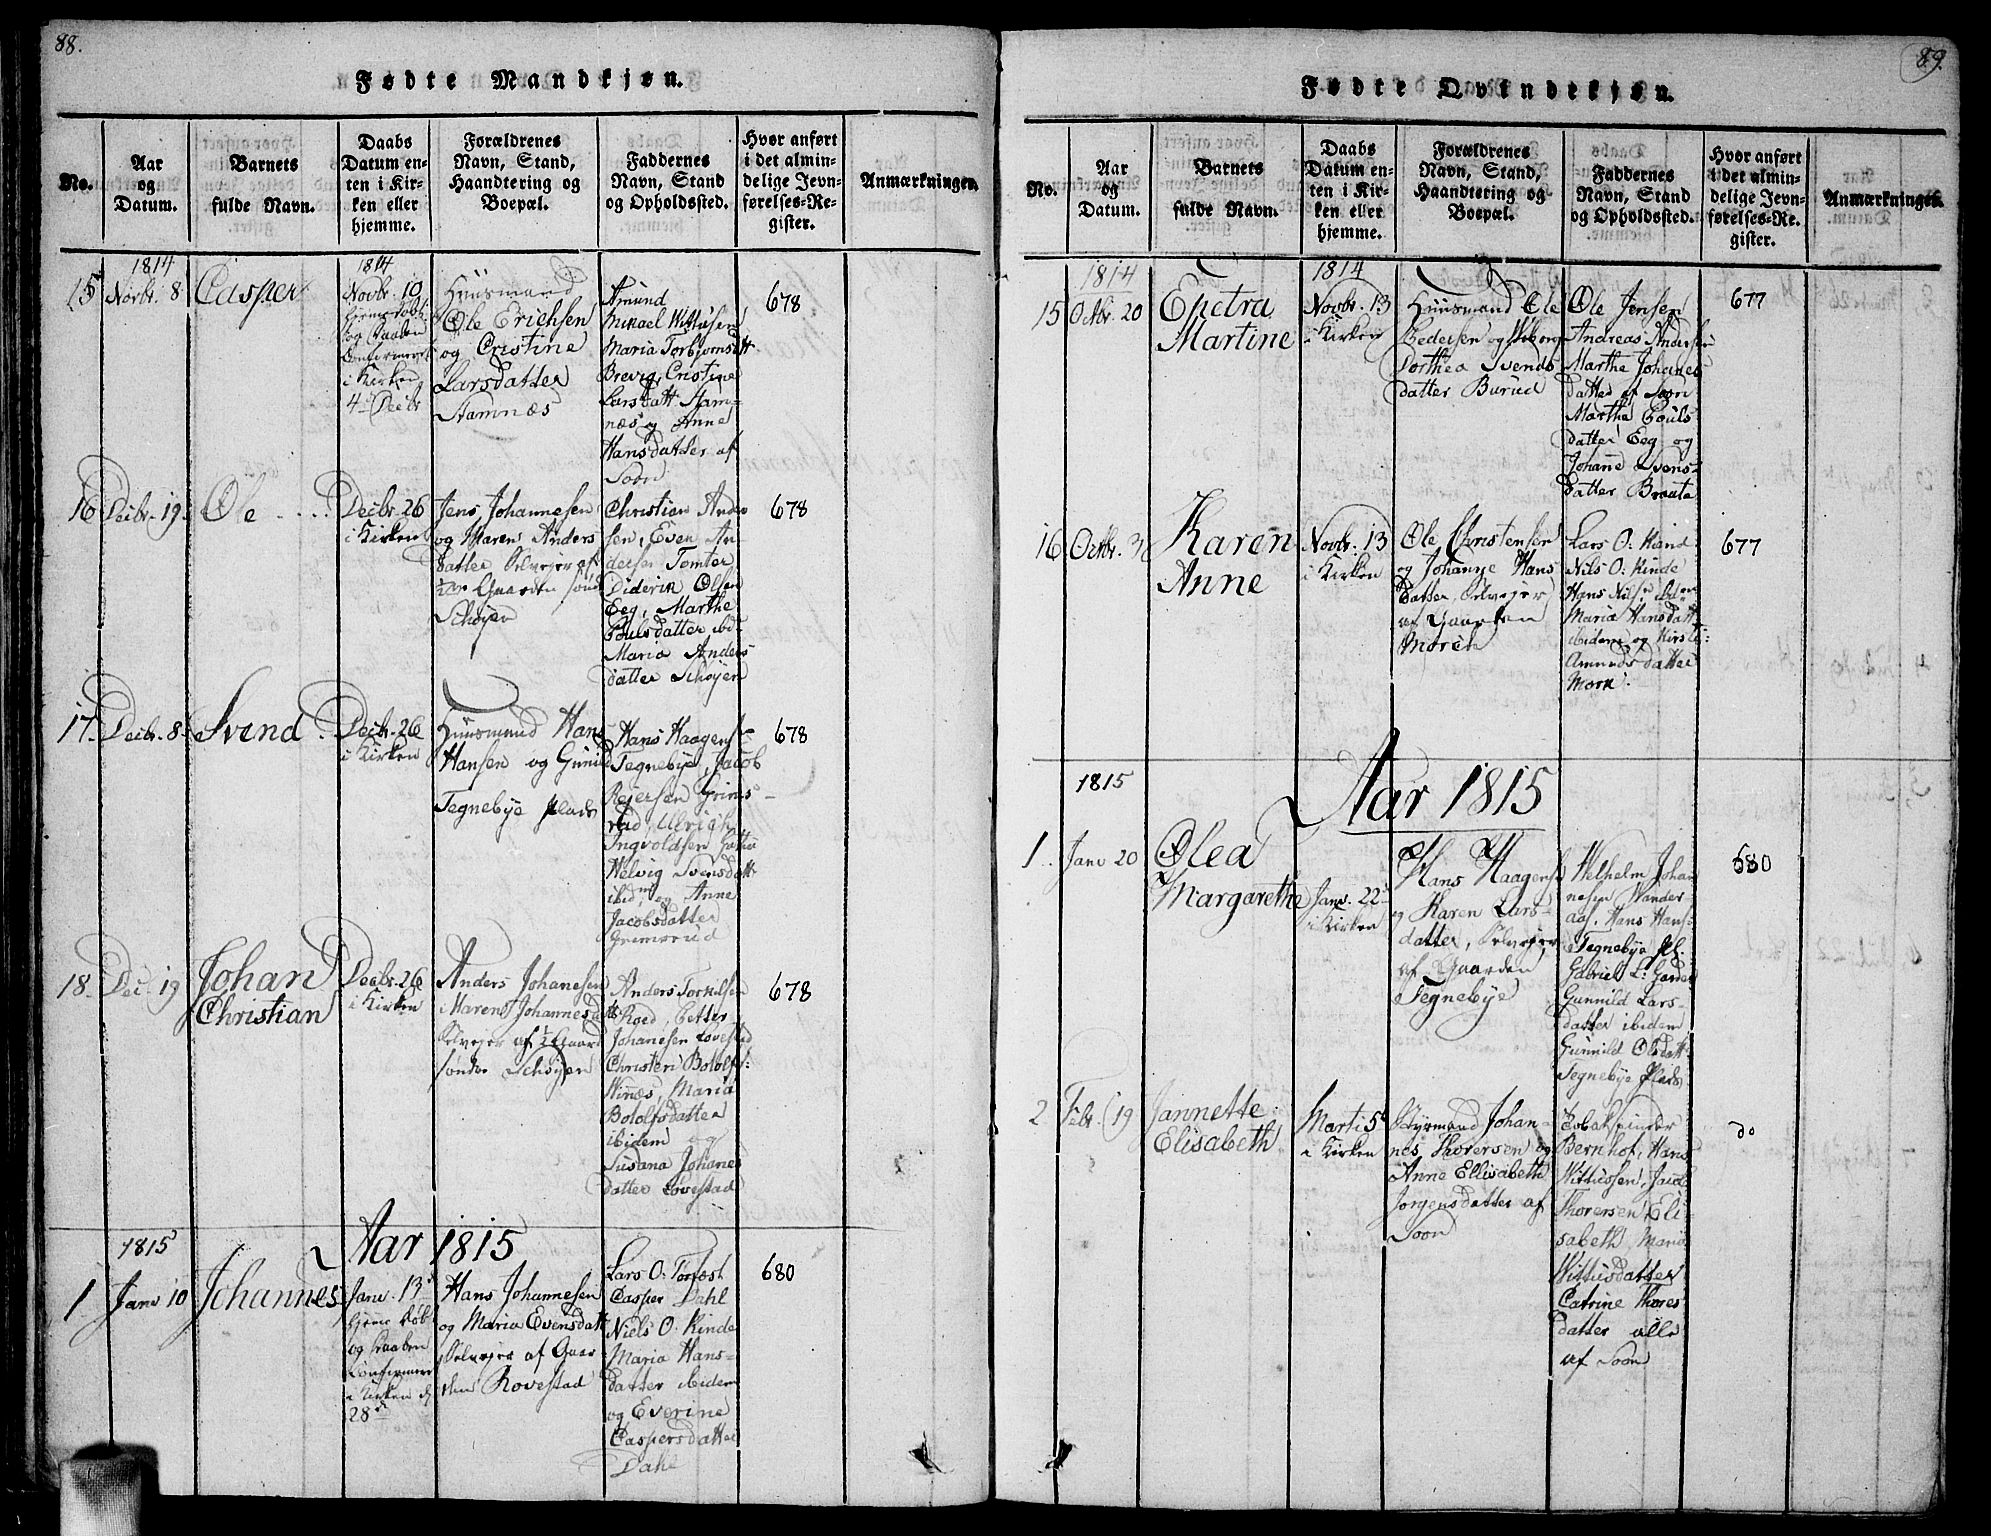 88.
Fødte Mandkjøn.
No.
Aar
og
Datum.
Barnets
fulde Navn.
Daabs
Datum en-
ten i Kir-
ken eller
hjemme.
Forældrenes
Navn, Stand,
Haandtering og
Boepæl.
Faddernes
Navn, Stand
og Opholdssted.
Hvor anført
i det almin-
delige Jevn-
førelses-Re-
gister.
Anmærkninger.
1814
15 Novbr. 8
Casper
1814
Novbr. 10
Hjemedøbt
og Daaben
Confirmeret
i Kirken
4 Decbr
Huusmand
Ole Erichsen
og Cristine
Larsdatter
Stamnæs
Amund
Mikael Wittusen
Maria Torbjørnsdatt
Brevig, Cristine
Larsdatt Stam-
næs og Anne
Hansdatter af
Soon
678
16 Decbr. 19
Ole
Decbr. 26
i Kirken
Jens Johannesen
og Maren Anders
datter Selvejer af
Gaarden søndr
Schøyen
Christian Ander
sen, Even An-
dersen Tomter
Diderik Olsen
Eeg, Marthe
Poulsdatter ibd
Maria Anders
datter Schøyen
678
17. Decbr. 8
Svend
Decbr. 26
i Kirken
Huusmand Hans
Hansen og Gunild
Tegnebye plads
Hans Haagens
Tegnebye, Jacob
Rejersen Grims-
rud, Ulrich
Ingvoldsen
Helvig Svensdatt
ibidm, og Anne
Jacobsdatter
Gremsrud
678
18. Dec. 19
Johan
Christian
Decbr. 26
i Kirken
Anders Johanesen
Maren Johannesd
Selvejer af ½ Gaard
søndre Schøyen
Anders Torkilsen
Roed, Petter
Johanesen Rovestad
Christen Botolfs:
Winæs, Maria
Botolfsdatter
ibidem og
Susana Johanes
datter Rovestad
678
Aar 1815
1815
1 Janv 10
Johannes
Janv. 13
Hjeme døbt
og Daaben
Confirmeret
i Kirken d
28d
Hans Johannesen
og Maria Evensdatt
Selvejer af Gaar
den Rovestad
Lars O: Torfæst
Casper Dahl
Niels O. Kinde
Maria Hans-
datter ibidem
og Everine
Caspersdatter
Dahl
680
89.
Fødte Qvindekjøn.
No.
Aar
og
Datum.
Barnets
fulde Navn.
Daabs
Datum en-
ten i Kir-
ken eller
hjemme.
Forældrenes
Navn, Stand,
Haandtering og
Boepæl.
Faddernes
Navn, Stand
og Opholdssted.
Hvor anført
i det almin-
delige Jevn-
førelses-Re-
gister.
Anmærkninger.
1814
15 Octbr. 20
Epetra
Martine
1814
Novbr. 13
i Kirken
Huusmand Ole
Pedersen og Viborg
Dorthea Svends
datter Burud
Ole Jensen
Andreas Andersen
Marthe Johanes
datter af Soon
Marthe Pouls
datter Eeg og
Johane Svens-
datter Braate
677
16 Octbr. 31
Karen
Anne
Novbr. 13
i Kirken
Ole Christensen
og Johanne Hans
datter, Selvejer
af Gaarden
Morch
Lars O: Kind
Nils O: Kinde
Hans Nilsen ibdem
Maria Hansdatt
ibidem og Kirsti
Amundsdatter
Mork.
677
1815
Aar 1815
1 Janv 20
Olea
Margarethe
Janv. 22
i Kirken
Hans Haagens
og Karen Lars-
datter, Selvejer
af Gaarden
Tegnebye
Welhelm Johan
nesen Wander
aas, Hans Hans-
Tegnebye Pl:
Gabriel L: Garder
Gunnild Lars-
datter ibidem
Gunnild Olsdatt
Tegnebye Plads
680
2 Febr. 19
Jannette
Elisabeth
Marti 5
i Kirken
Styrmand Johan-
nes Thoresen og
Anne Ellisabeth
Jørgensdatter af
Soon
Tobakspinder
Bernhof, Hans
Wittussen, Jacob
Thoresen, Eli
sabeth, Maria
Wittusdatter
Catrine Thores
datter alle
af Soon
do